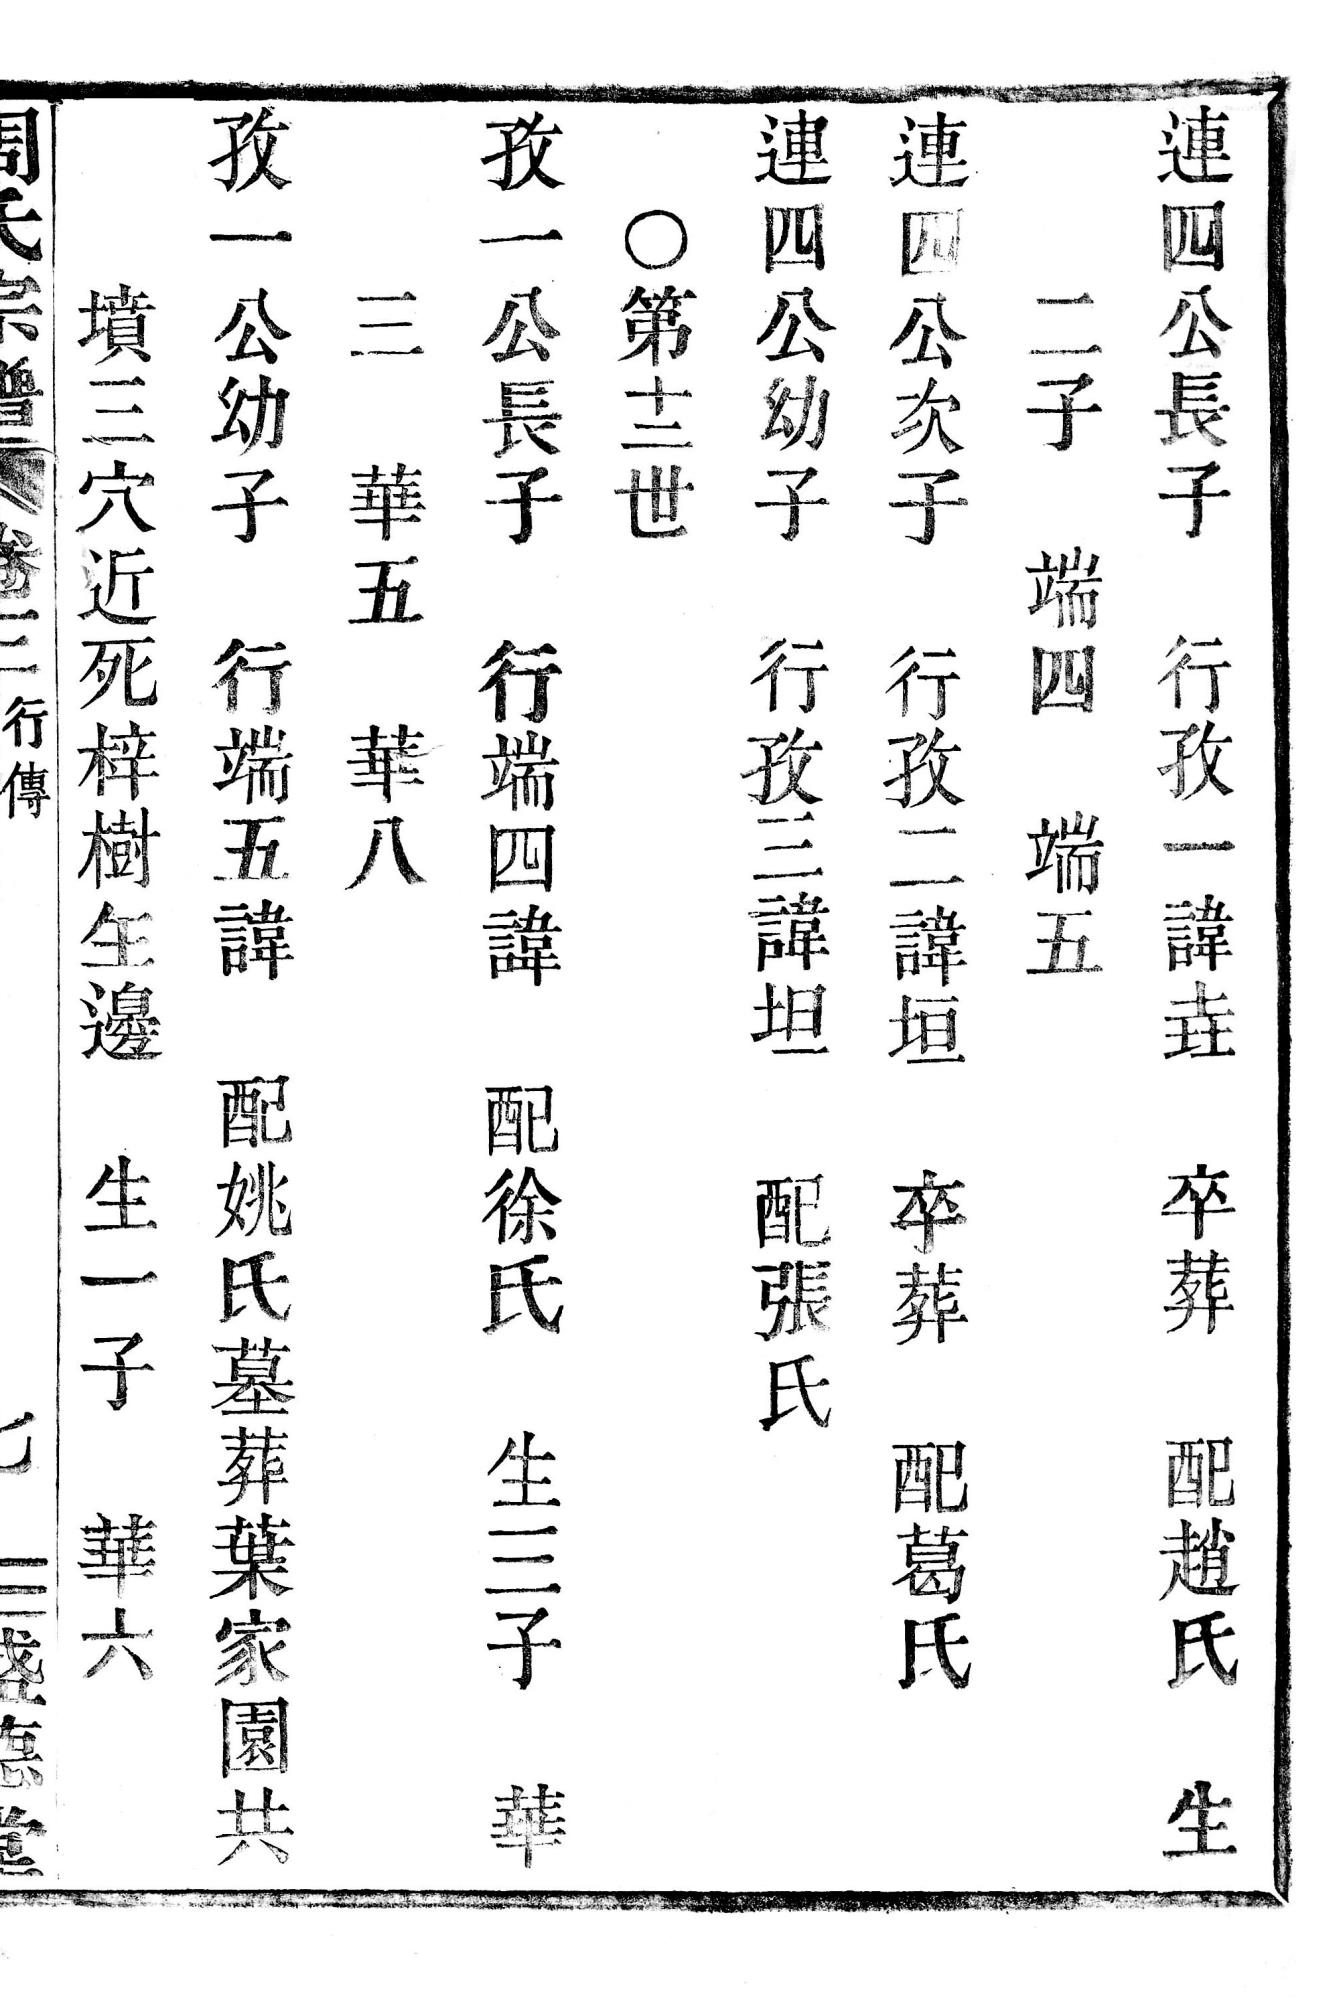 連四公長子　行孜一諱垚　卒葬　配趙氏　生
二子　端四　端五
連四公次子　行孜二諱垣　卒葬　配葛氏
連四公幼子　行孜三諱坦　配張氏
〇第十二世
孜一公長子　行端四諱　配徐氏　生三子　華
三　華五　華八
孜一公幼子　行端五諱　配姚氏墓葬葉家園共
墳三穴近死梓樹左邊　生一子　華六
周氏宗譜　卷三　行傳　七　三盛悳堂